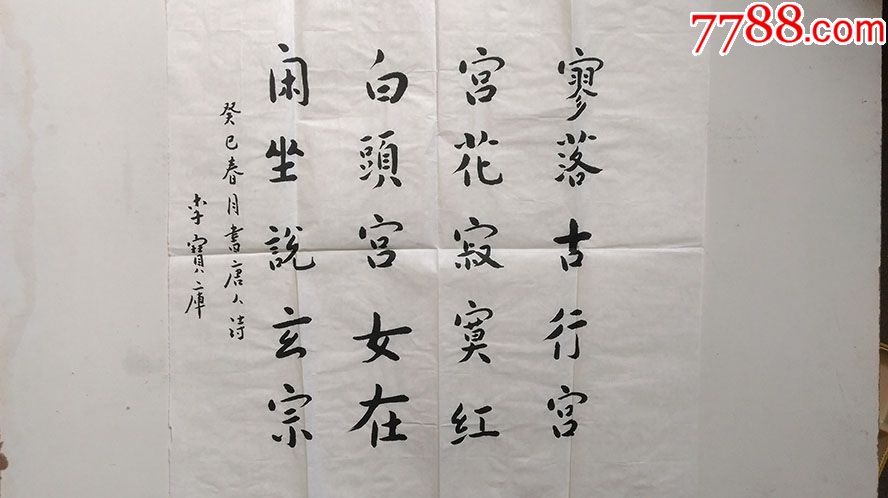 寥落古行宫
宫花寂寞红
白頭宫女在
闲坐說玄宗
癸巳春月書唐人詩
李寶庫
7788.com
中国收藏热线